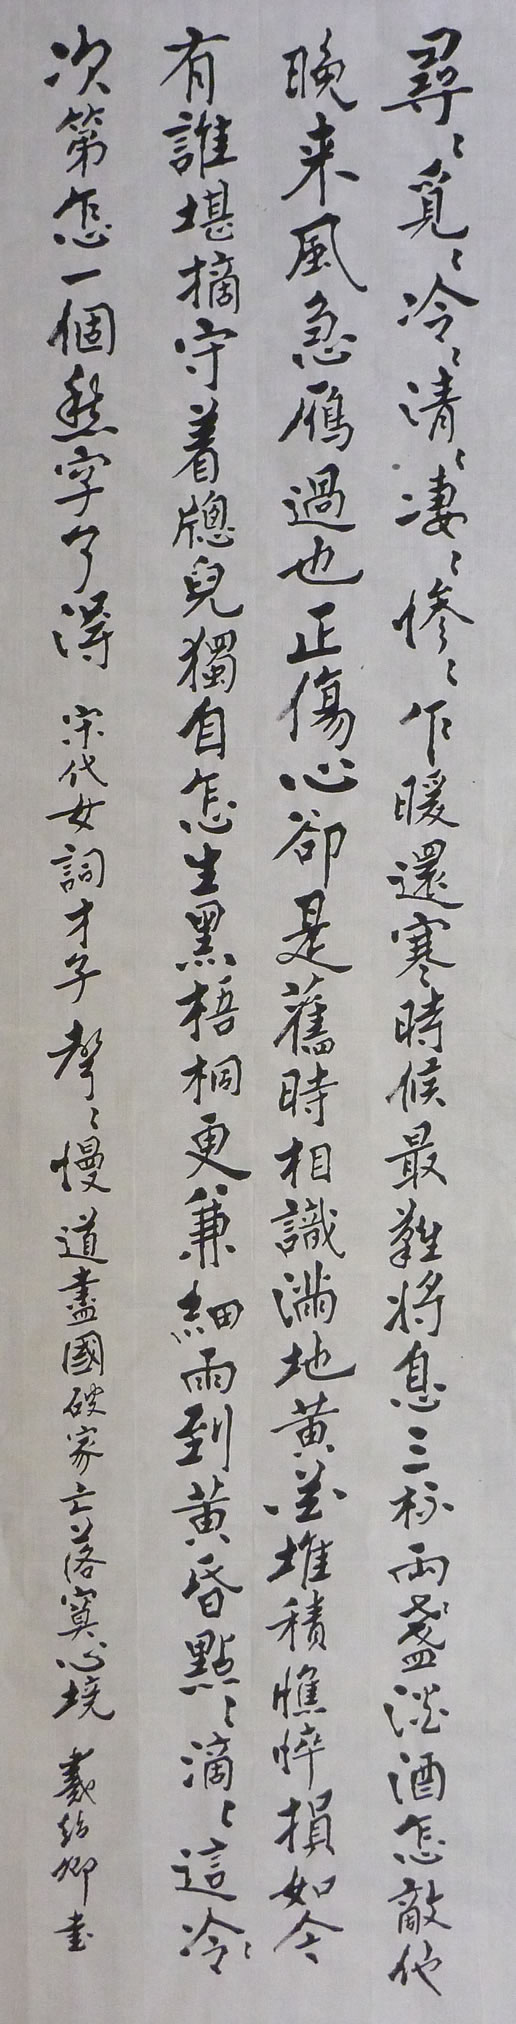 尋〻覓〻冷〻清〻凄〻慘〻乍暖還寒時候最難將息三杯兩盞淡酒怎敵他
晚来風急雁過也正傷心卻是舊時相識滿地黃花堆積憔悴損如今
有誰堪摘守着牕兒獨自怎生黑梧桐更兼細雨到黃昏點〻滴〻這冷〻
次第怎一個愁字了得 宋代女詞才子 聲〻慢 道盡國破家亡落寞心境 卿書